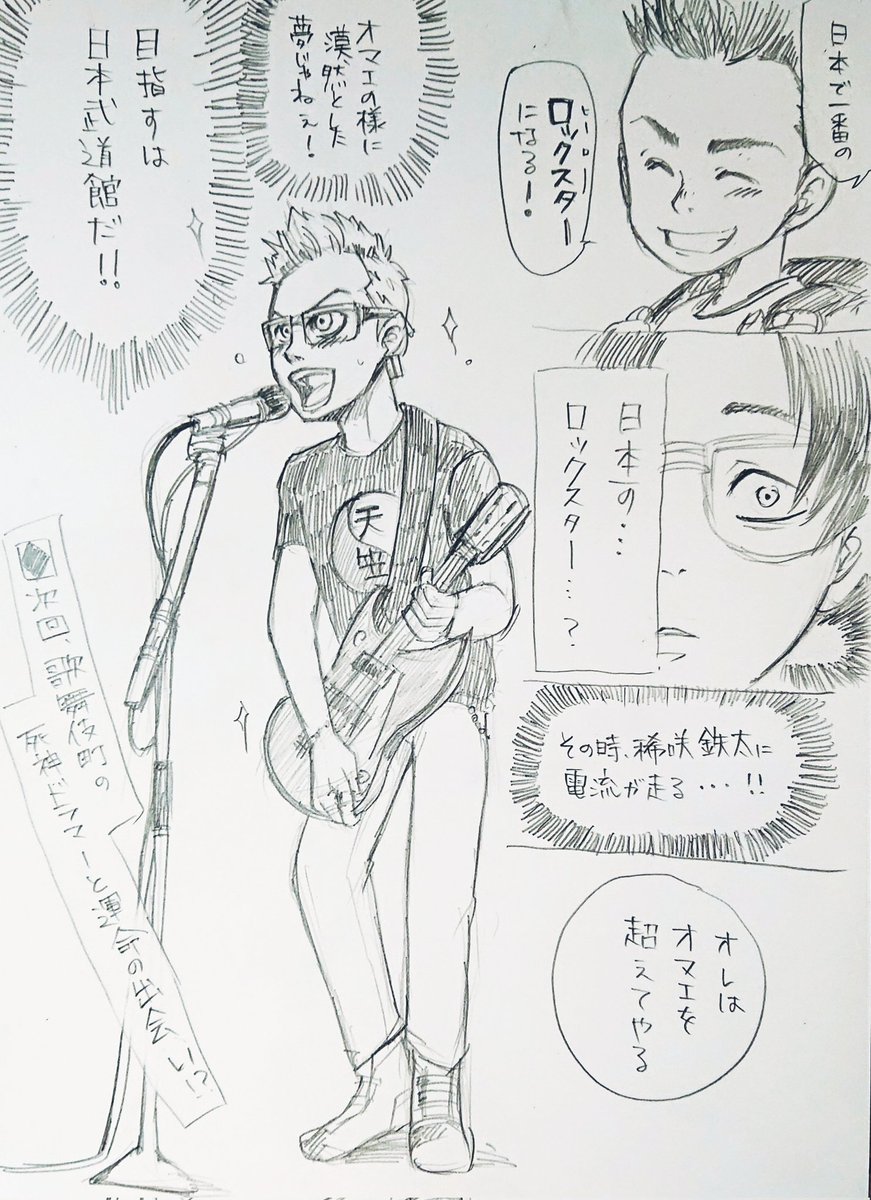 日本で一番の
ロックスター
ヒーロー
になる!
日本一の…
ロックスター…?
その時、稀咲鉄太に
電流が走る・・・!!
オレは
オマエを
超えてやる
オマエの様に
漠然とした
夢じゃねぇ!
目指すは
日本武道館だ!!
天竺
次回、歌舞伎町の
死神ドラマーと運命の出会い!?